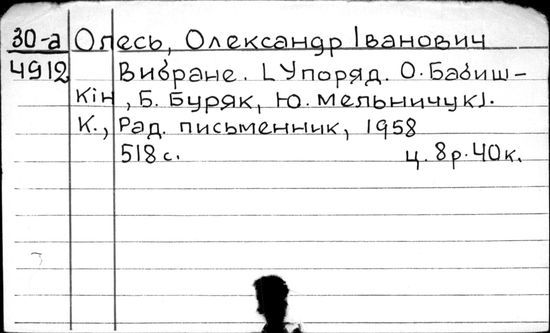 30-а Олесь, Олександр Іванович
4912 Вибране. [Упоряд. О. Бабиш-
кін, Б. Буряк, Ю. Мельничук].
К., Рад. письменник, 1958
518 с. ц. 8 р. 40 к.